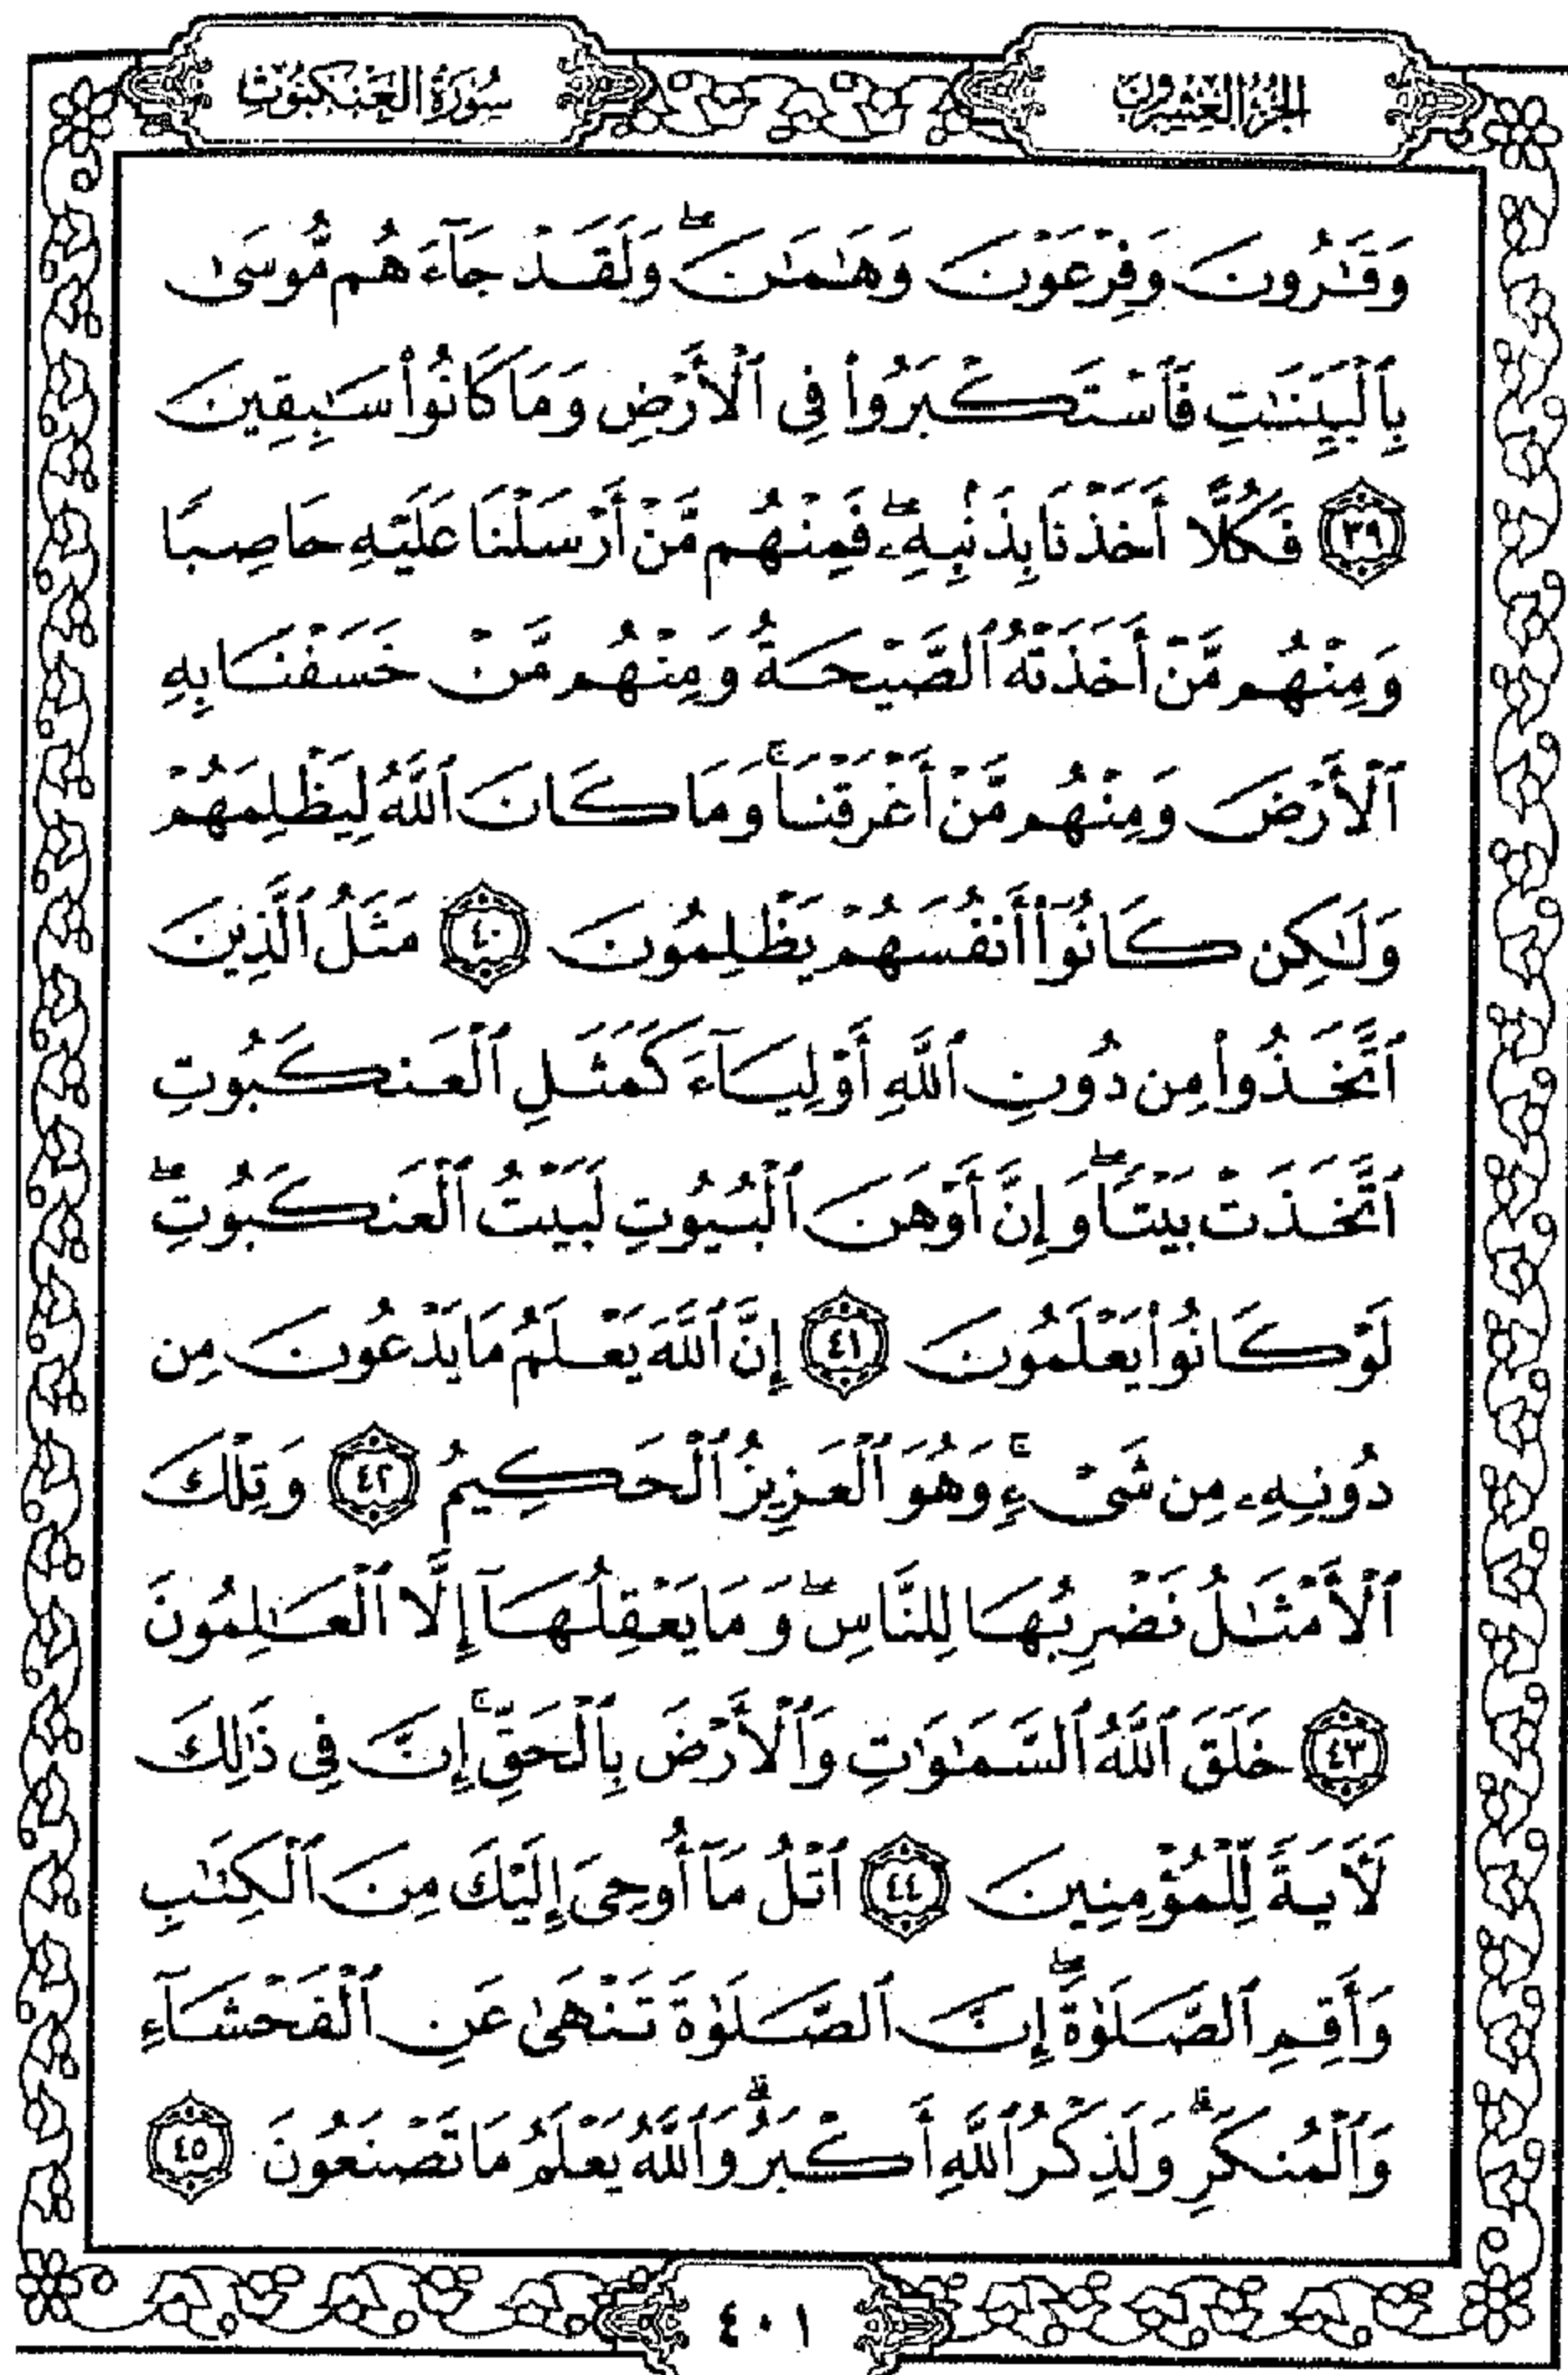 الجزء العشرون
سُورَةُ العَنكَبُوتِ
وَقَٰرُونَ وَفِرْعَوْنَ وَهَٰمَٰنَ ۖ وَلَقَدْ جَآءَهُم مُّوسَىٰ
بِٱلْبَيِّنَٰتِ فَٱسْتَكْبَرُوا۟ فِى ٱلْأَرْضِ وَمَا كَانُوا۟ سَٰبِقِينَ
٣٩ فَكُلًّا أَخَذْنَا بِذَنۢبِهِۦ ۖ فَمِنْهُم مَّنْ أَرْسَلْنَا عَلَيْهِ حَاصِبًا
وَمِنْهُم مَّنْ أَخَذَتْهُ ٱلصَّيْحَةُ وَمِنْهُم مَّنْ خَسَفْنَا بِهِ
ٱلْأَرْضَ وَمِنْهُم مَّنْ أَغْرَقْنَا ۚ وَمَا كَانَ ٱللَّهُ لِيَظْلِمَهُمْ
وَلَٰكِن كَانُوٓا۟ أَنفُسَهُمْ يَظْلِمُونَ ٤٠ مَثَلُ ٱلَّذِينَ
ٱتَّخَذُوا۟ مِن دُونِ ٱللَّهِ أَوْلِيَآءَ كَمَثَلِ ٱلْعَنكَبُوتِ
ٱتَّخَذَتْ بَيْتًا ۖ وَإِنَّ أَوْهَنَ ٱلْبُيُوتِ لَبَيْتُ ٱلْعَنكَبُوتِ ۖ
لَوْ كَانُوا۟ يَعْلَمُونَ ٤١ إِنَّ ٱللَّهَ يَعْلَمُ مَا يَدْعُونَ مِن
دُونِهِۦ مِن شَىْءٍ ۚ وَهُوَ ٱلْعَزِيزُ ٱلْحَكِيمُ ٤٢ وَتِلْكَ
ٱلْأَمْثَٰلُ نَضْرِبُهَا لِلنَّاسِ ۖ وَمَا يَعْقِلُهَآ إِلَّا ٱلْعَٰلِمُونَ
٤٣ خَلَقَ ٱللَّهُ ٱلسَّمَٰوَٰتِ وَٱلْأَرْضَ بِٱلْحَقِّ ۚ إِنَّ فِى ذَٰلِكَ
لَءَايَةً لِّلْمُؤْمِنِينَ ٤٤ ٱتْلُ مَآ أُوحِىَ إِلَيْكَ مِنَ ٱلْكِتَٰبِ
وَأَقِمِ ٱلصَّلَوٰةَ ۖ إِنَّ ٱلصَّلَوٰةَ تَنْهَىٰ عَنِ ٱلْفَحْشَآءِ
وَٱلْمُنكَرِ ۗ وَلَذِكْرُ ٱللَّهِ أَكْبَرُ ۗ وَٱللَّهُ يَعْلَمُ مَا تَصْنَعُونَ ٤٥
٤٠١